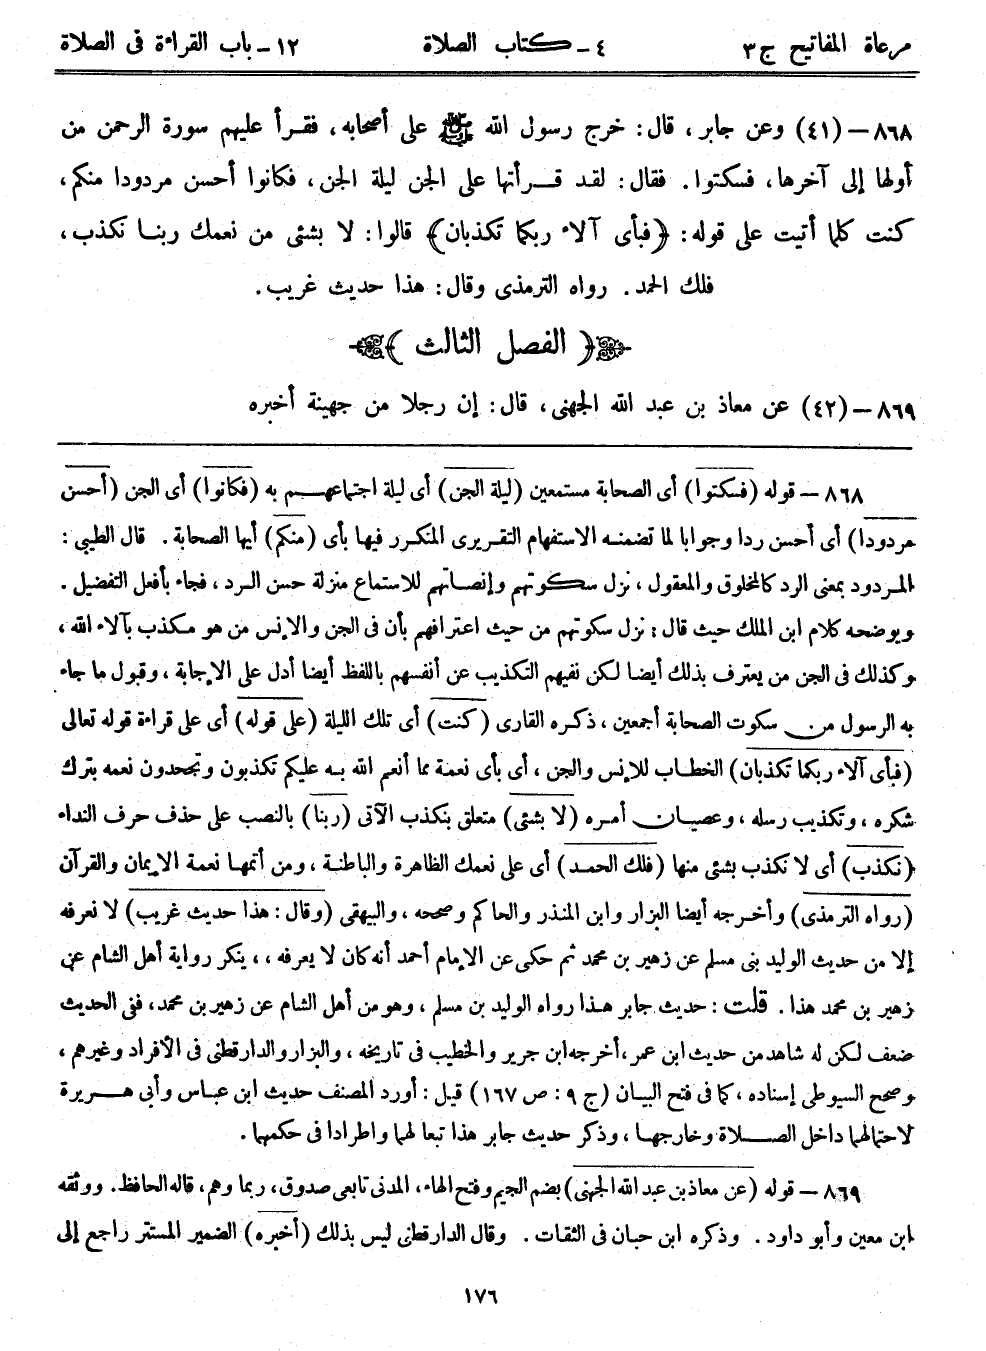 مرعاة المفاتيح ج٣
٤ - كتاب الصلاة
١٢ - باب القراءة فى الصلاة
٨٦٨ - (٤١) وعن جابر ، قال: خرج رسول الله ﷺ على أصحابه، فقرأ عليهم سورة الرحمن من
أولها إلى آخرها، فسكتوا. فقال: لقد قرأتها على الجن ليلة الجن، فكانوا أحسن مردودا منكم،
كنت كلما أتيت على قوله: ﴿فبأى آلاء ربكما تكذبان﴾ قالوا: لا بشئى من نعمك ربنا نكذب،
فلك الحمد. رواه الترمذى وقال: هذا حديث غريب.
﴿ الفصل الثالث ﴾
٨٦٩ - (٤٢) عن معاذ بن عبد الله الجهنى، قال: إن رجلا من جهينة أخبره
٨٦٨ - قوله (فسكتوا) أى الصحابة مستمعين (ليلة الجن) أى ليلة اجتماعهم به (فكانوا) أى الجن (أحسن
مردودا) أى أحسن ردا وجوابا لما تضمنه الاستفهام التقريرى المتكرر فيها بأى (منكم) أيها الصحابة. قال الطيبى:
المردود بمعنى الرد كالمخلوق والمعقول، نزل سكوتهم وإنصاتهم للاستماع منزلة حسن الرد، فجاء بأفعل التفضيل.
ويوضحه كلام ابن الملك حيث قال: نزل سكوتهم من حيث اعترافهم بأن فى الجن والإنس من هو مكذب بآلاء الله،
وكذلك فى الجن من يعترف بذلك أيضا لكن نفيهم التكذيب عن أنفسهم باللفظ أيضا أدل على الإجابة، وقبول ما جاء
به الرسول من سكوت الصحابة أجمعين، ذكره القارى (كنت) أى تلك الليلة (على قوله) أى على قراءة قوله تعالى
(فبأى آلاء ربكما تكذبان) الخطاب للإنس والجن، أى بأى نعمة مما أنعم الله به عليكم تكذبون وتجحدون نعمه بترك
شكره، وتكذيب رسله، وعصيان أمره (لا بشئى) متعلق بنكذب الآتى (ربنا) بالنصب على حذف حرف النداء
(نكذب) أى لا نكذب بشئى منها (فلك الحمد) أى على نعمك الظاهرة والباطنة، ومن أتمها نعمة الإيمان والقرآن
(رواه الترمذى) وأخرجه أيضا البزار وابن المنذر والحاكم وصححه، والبيهقى (وقال: هذا حديث غريب) لا نعرفه
إلا من حديث الوليد بنى مسلم عن زهير بن محمد ثم حكى عن الإمام أحمد أنه كان لا يعرفه ،، ينكر رواية أهل الشام عن
زهير بن محمد هذا. قلت: حديث جابر هذا رواه الوليد بن مسلم، وهو من أهل الشام عن زهير بن محمد، ففى الحديث
ضعف لكن له شاهد من حديث ابن عمر، أخرجه ابن جرير والخطيب فى تاريخه، والبزار والدارقطنى فى الأفراد وغيرهم،
وصحح السيوطى إسناده، كما فى فتح البيان (ج ٩: ص ١٦٧) قيل: أورد المصنف حديث ابن عباس وأبى هريرة
لاحتمالهما داخل الصلاة وخارجها، وذكر حديث جابر هذا تبعا لهما واطرادا فى حكمهما.
٨٦٩ - قوله (عن معاذ بن عبد الله الجهنى) بضم الجيم وفتح الهاء، المدنى تابعى صدوق، ربما وهم، قاله الحافظ. ووثقه
ابن معين وأبو داود. وذكره ابن حبان فى الثقات. وقال الدارقطنى ليس بذلك (أخبره) الضمير المستتر راجع إلى
١٧٦